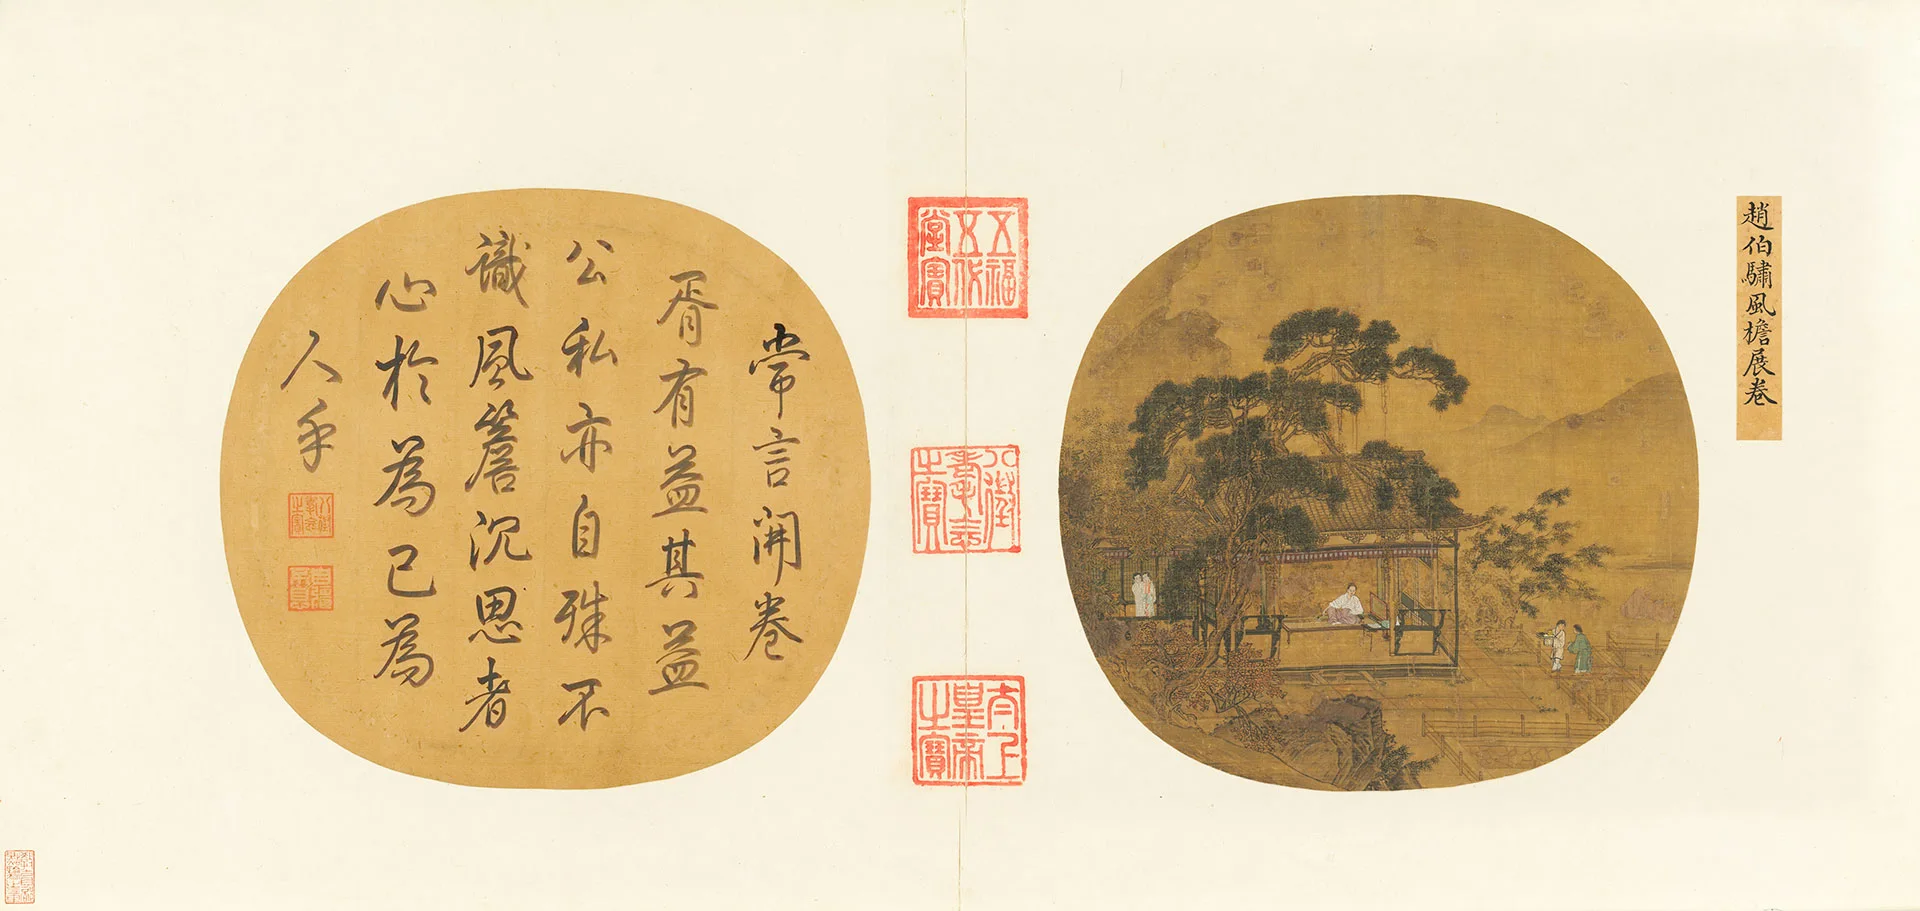 趙伯驌風檐展卷
五福五代堂寶
八徵耄念之寶
太上皇帝之寶
常言開卷
胥有益其益
公私亦自殊不
識風簷沉思者
心於為己為
人乎
八徵耄念之寶